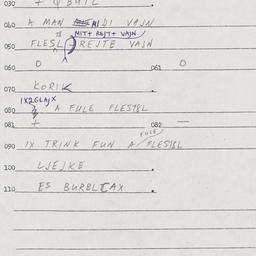 030
040 A MAN DI VAJN
MIT+ REJT+ VAJN
050 FLESL REJTE VAJN
060 O 061 O
070 KORIK
1X2GLAJX
080 A FULE FLESTBL
081 + 082 —
FULE
090 IX TRINK FUN A FLESTBL
100 LJEJKE
110 ES BURBLTAX